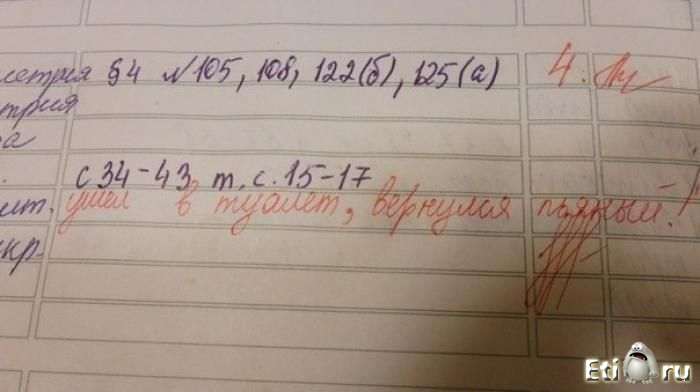 метрия §4 N105, 108, 122(б), 125(а) 4.
трия
а
с 34-43 т. с. 15-17
лит. ушел в туалет, вернулся пьяный!
кр.
Eti ru